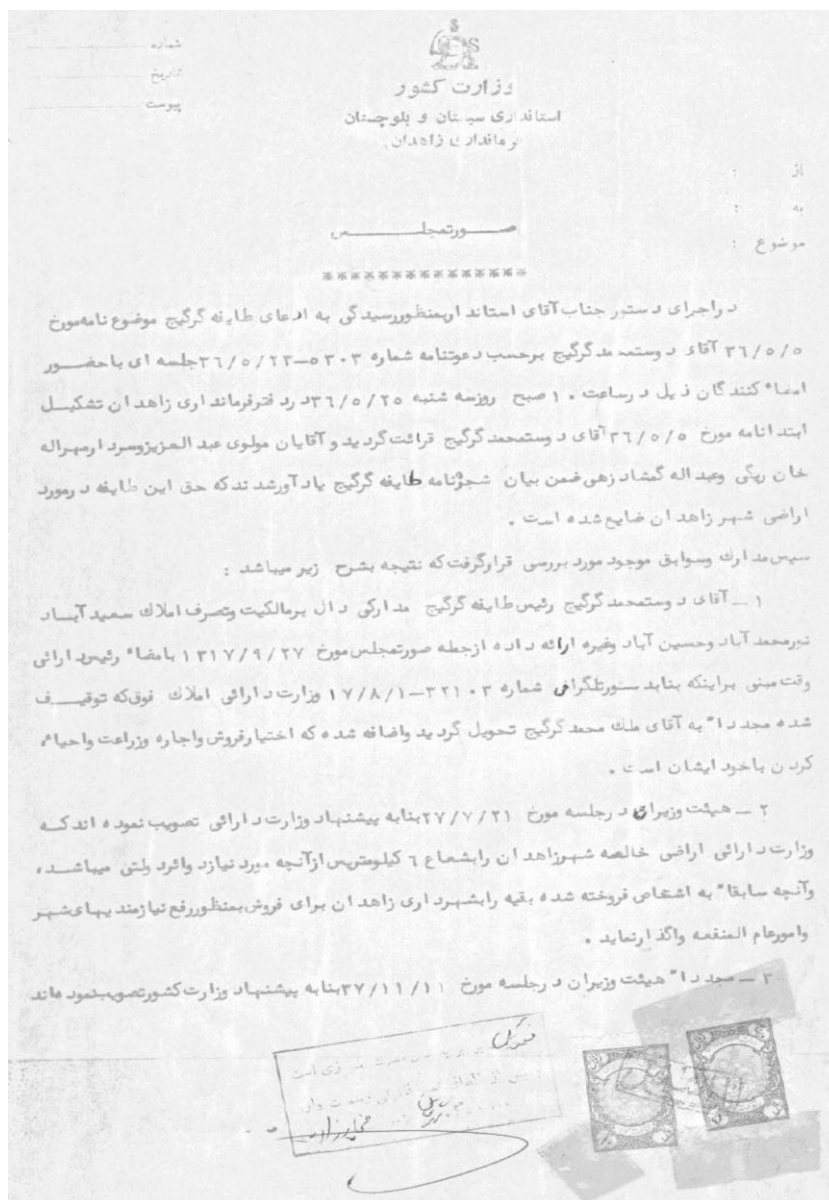 شماره
تاریخ
پیوست
وزارت کشور
استانداری سیستان و بلوچستان
فرمانداری زاهدان
از :
به :
موضوع :
صورتمجلس
******************
در اجرای دستور جناب آقای استاندار بمنظور رسیدگی به ادعای طایفه گرگیج موضوع نامه مورخ
۳۶/۵/۵ آقای دوستمحمد گرگیج برحسب دعوتنامه شماره ۵۳۰۳-۳۶/۵/۲۳ جلسه ای با حضور
امضاء کنندگان ذیل در ساعت ۱۰ صبح روز سه شنبه ۳۶/۵/۲۵ در دفتر فرمانداری زاهدان تشکیل
ابتدا نامه مورخ ۳۶/۵/۵ آقای دوستمحمد گرگیج قرائت گردید و آقایان مولوی عبدالعزیز و سردار مهراله
خان ریگی وعبداله گمشادزهی ضمن بیان شجره نامه طایفه گرگیج یادآور شدند که حق این طایفه در مورد
اراضی شهر زاهدان ضایع شده است .
سپس مدارك وسوابق موجود مورد بررسی قرار گرفت که نتیجه بشرح زیر میباشد :
۱ – آقای دوستمحمد گرگیج رئیس طایفه گرگیج مدارکی دال برمالکیت وتصرف املاك سعید آباد
نورمحمد آباد وحسین آباد وغیره ارائه داده ازجمله صورتمجلس مورخ ۱۳۱۷/۹/۲۷ بامضاء رئیس دارائی
وقت مبنی براینکه بنابدستور تلگرافی شماره ۳۲۱۰۳-۱۷/۸/۱ وزارت دارائی املاك فوق که توقیف
شده مجددا" به آقای ملك محمد گرگیج تحویل گردید واضافه شده که اختیار فروش واجاره وزراعت واحیاء
کردن باخود ایشان است .
۲ – هیئت وزیران در جلسه مورخ ۲۷/۷/۲۱ بنابه پیشنهاد وزارت دارائی تصویب نموده اند که
وزارت دارائی اراضی خالصه شهر زاهدان رابشعاع ۶ کیلومتر پس ازآنچه مورد نیاز دوائر دولتی میباشد
وآنچه سابقا" به اشخاص فروخته شده بقیه رابشهرداری زاهدان برای فروش بمنظور رفع نیازمندیهای شهر
وامور عام المنفعه واگذار نماید .
۳ – مجددا" هیئت وزیران در جلسه مورخ ۲۷/۱۱/۱۱ بنابه پیشنهاد وزارت کشور تصویب نموده اند